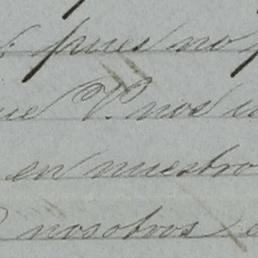 pues no
que V. nos
en nuestro
nosotros